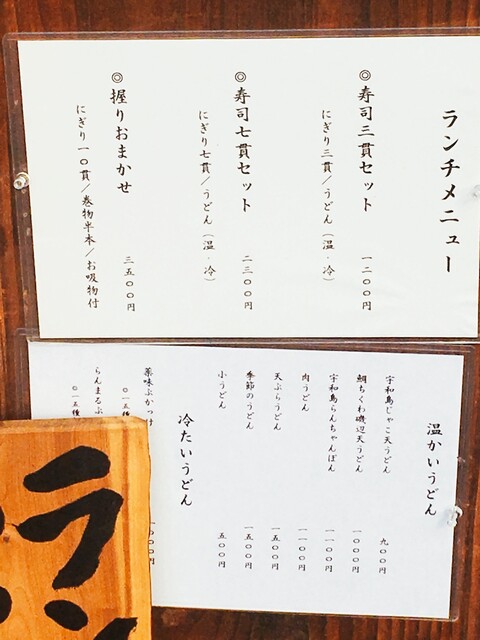 ランチメニュー
◎寿司三貫セット
一二〇〇円
にぎり三貫/うどん(温・冷)
◎寿司七貫セット
二三〇〇円
にぎり七貫/うどん(温・冷)
◎握りおまかせ
三五〇〇円
にぎり一〇貫/巻物半本/お吸物付
温かいうどん
宇和島じゃこ天うどん
九〇〇円
鯛ちくわ磯辺天うどん
一〇〇〇円
宇和島らんちゃんぽん
一一〇〇円
肉うどん
一一〇〇円
天ぷらうどん
一五〇〇円
季節のうどん
一五〇〇円
小うどん
五〇〇円
冷たいうどん
薬味ぶかっけ
一〇〇〇円
◎一五種
らんまるぶ
◎一五種
ラン